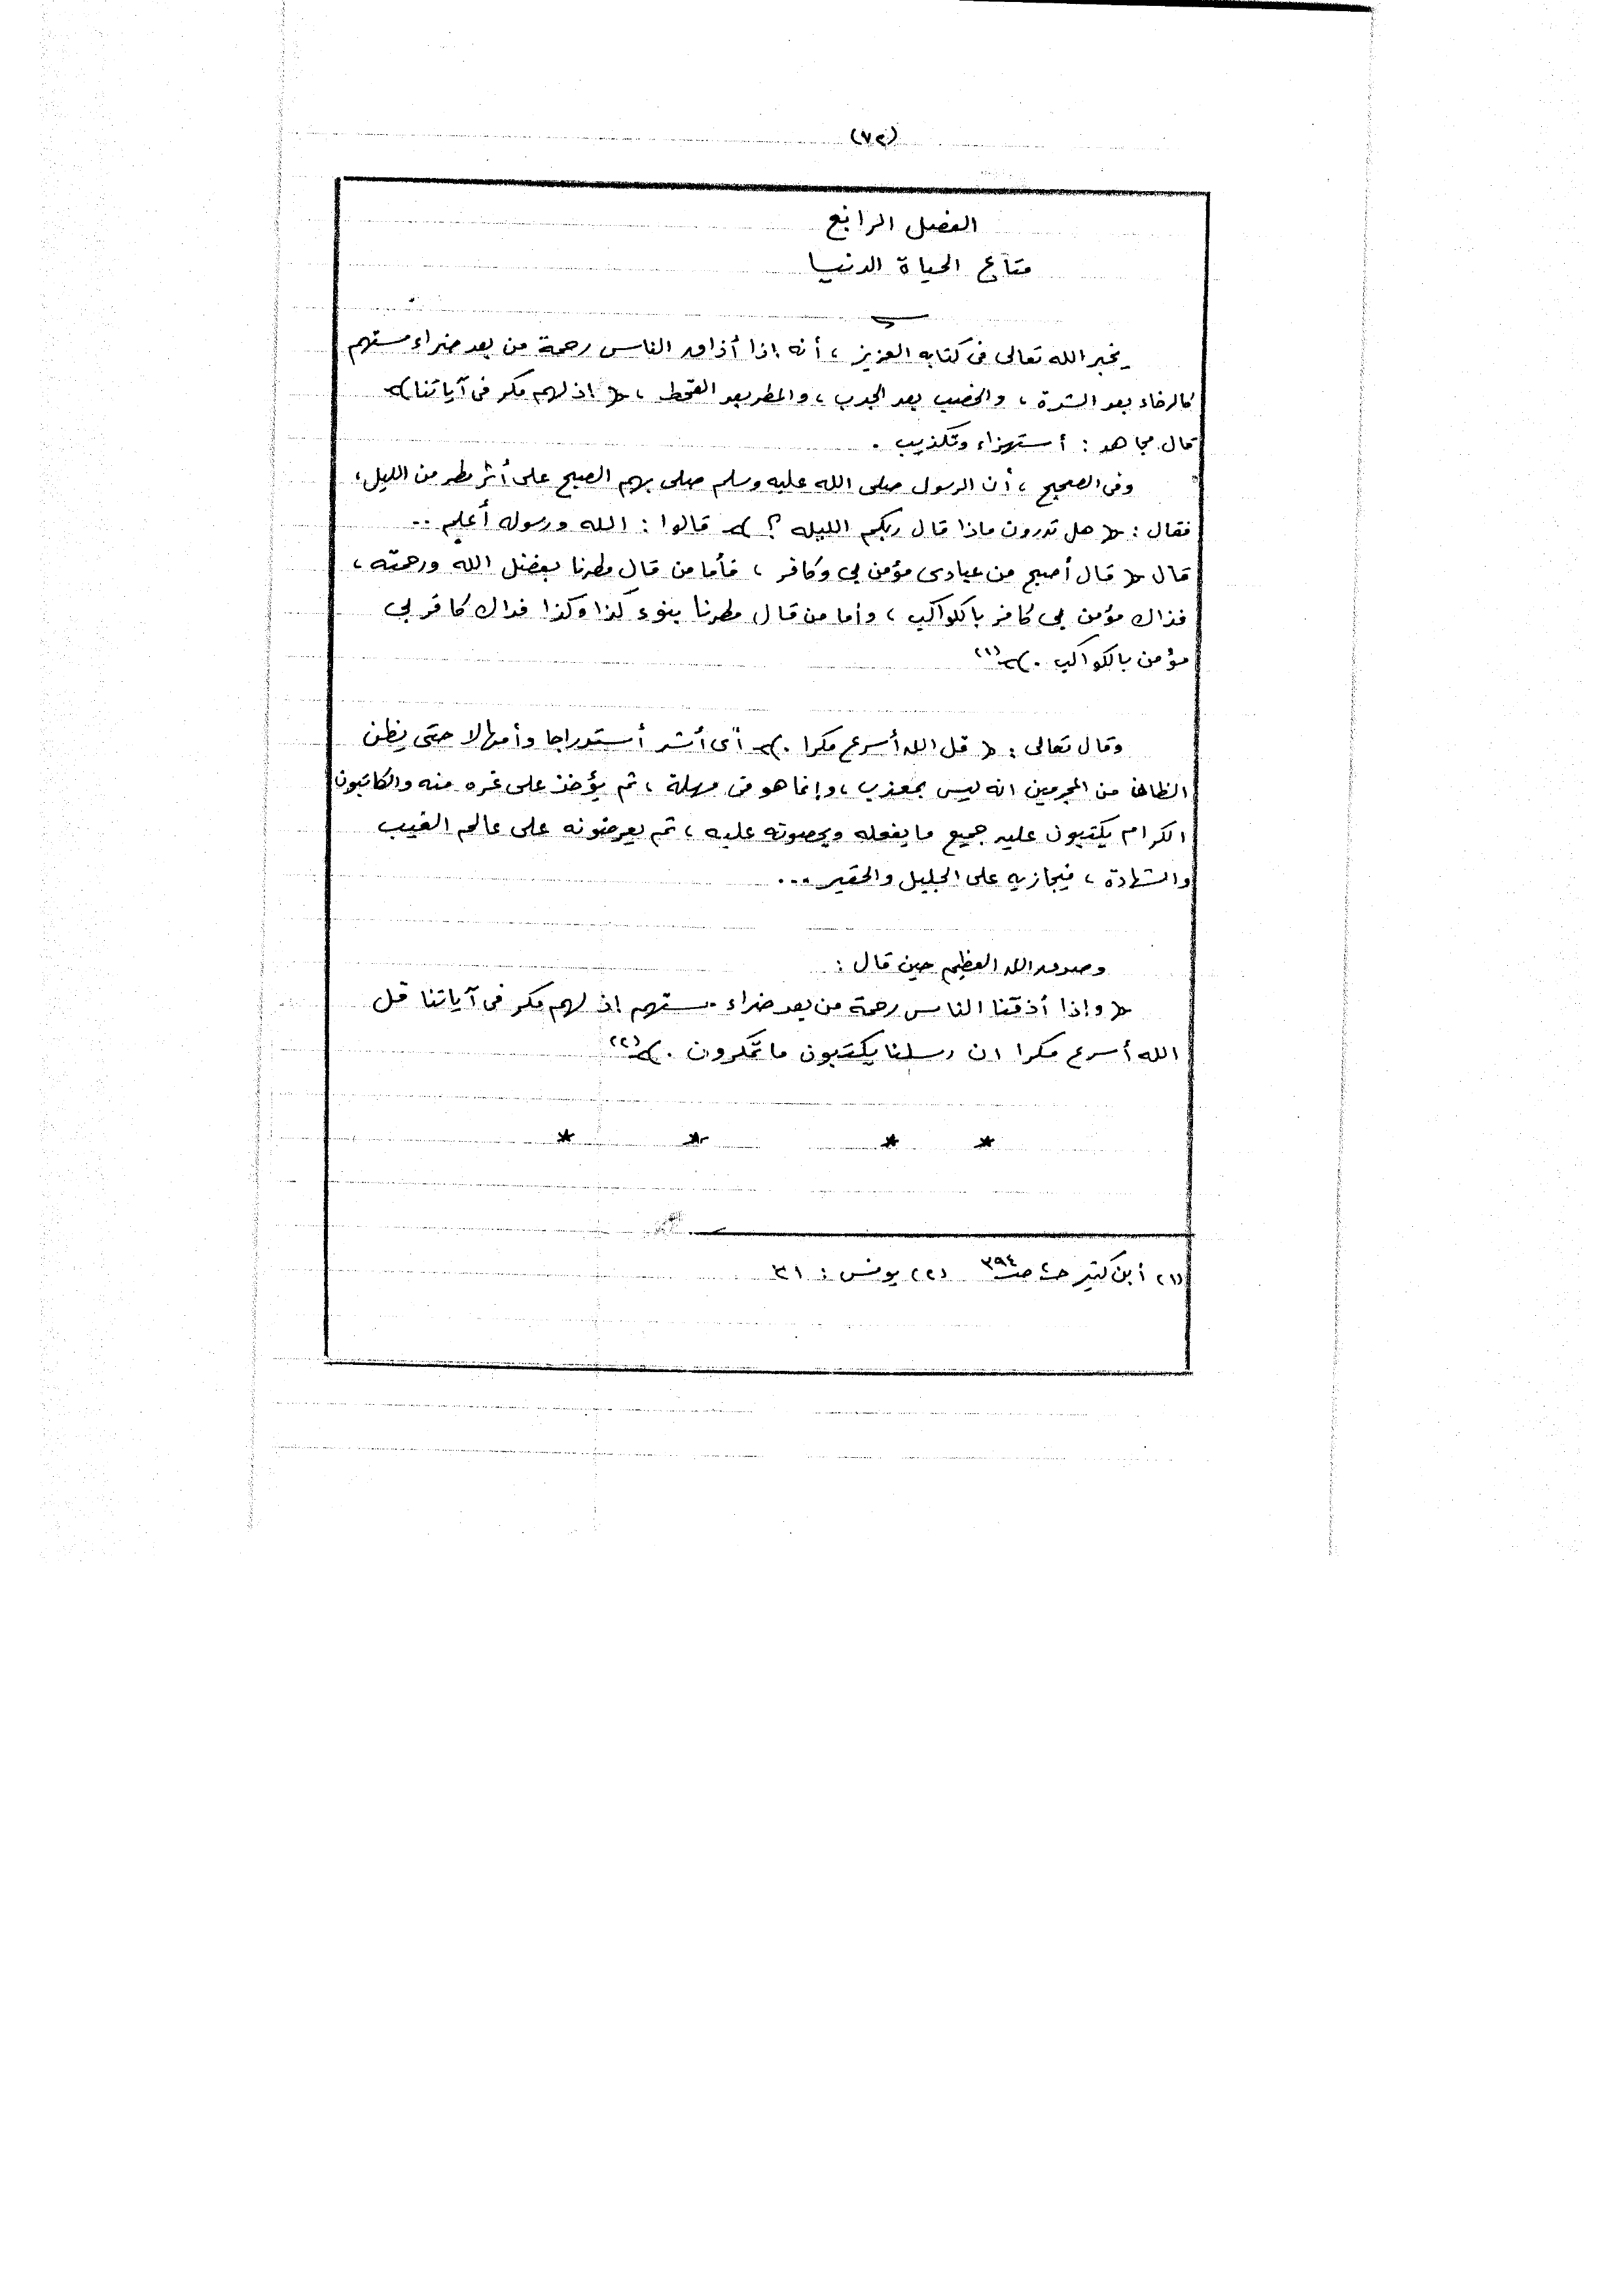 (٧٢)
الفصل الرابع
متاع الحياة الدنيا
يخبر الله تعالى فى كتابه العزيز ، أنه إذا أذاق الناس رحمة من بعد ضراء مستهم
كالرخاء بعد الشدة ، والخصب بعد الجدب ، والمطر بعد القحط ، ﴿ اذ لهم مكر فى آياتنا ﴾
قال مجاهد : أستهزاء وتكذيب .
وفى الصحيح ، أن الرسول صلى الله عليه وسلم صلى بهم الصبح على أثر مطر من الليل ،
فقال : ﴿ هل تدرون ماذا قال ربكم الليله ؟ ﴾ قالوا : الله ورسوله أعلم ..
قال ﴿ قال أصبح من عبادى مؤمن بى وكافر ، فأما من قال مطرنا بفضل الله ورحمته ،
فذاك مؤمن بى كافر بالكواكب ، وأما من قال مطرنا بنوء كذا وكذا فداك كافر بى
مؤمن بالكواكب . ﴾ (١)
وقال تعالى : ﴿ قل الله أسرع مكرا . ﴾ أى أشد أستدراجا وأمهالا حتى يظن
الظان من المجرمين انه ليس بمعذب ، وإنما هو فى مهلة ، ثم يؤخذ على غره منه والكاتبون
الكرام يكتبون عليه جميع ما يفعله ويحصونه عليه ، ثم يعرضونه على عالم الغيب
والشهادة ، فيجازيه على الجليل والحقير ...
وصدق الله العظيم حين قال :
﴿ وإذا أذقنا الناس رحمة من بعد ضراء مستهم إذ لهم مكر فى آياتنا قل
الله أسرع مكرا ان رسلنا يكتبون ما تمكرون . ﴾ (٢)
* * * *
(١) أبن كثير ح٤ ص٣٩٤ (٢) يونس : ٢١